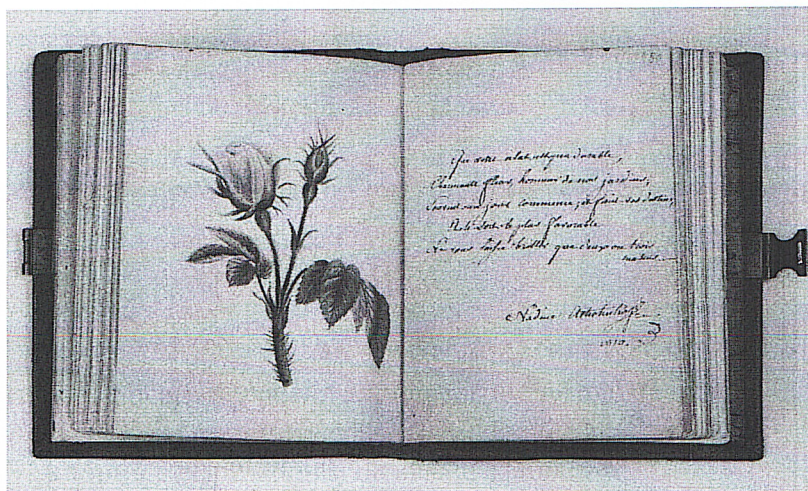 Que votre éclat est peu durable,
Charmante fleur, honneur de nos jardins,
Souvent un jour commence et finit vos destins,
Et le sort le plus favorable
Ne vous laisse briller que deux ou trois
matins.
Nadine